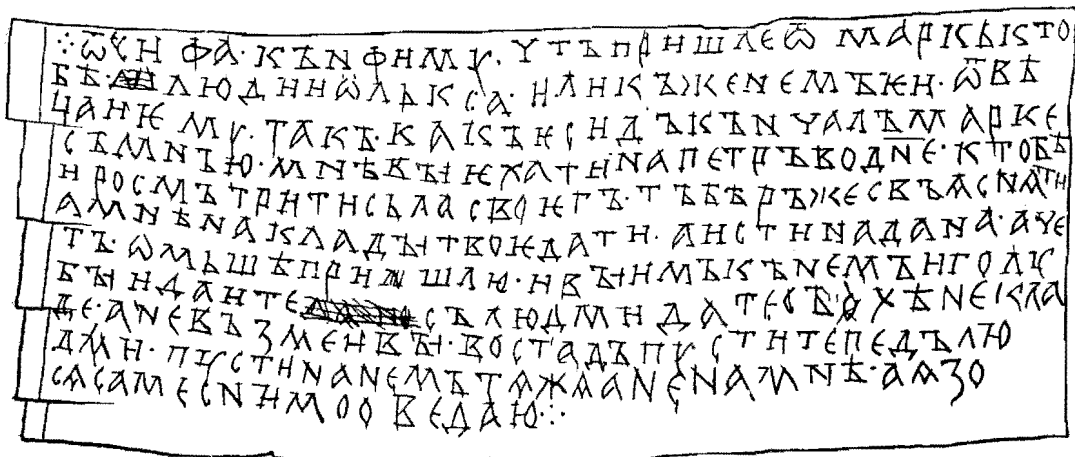 ⁘ѿсифа·кънфиму·цтъпришлеѿ маркъкто
бѣ·людииѡлькса·иликъженемъки·ѿвѣ
цаиѥму·такѣ·какъѥсидъкънцалъмарке
съмнъю·мнѣвыѥхатинапетръводне·ктобѣ
иросмътритисьласвоѥгъ·тъбѣръжесвъѧснѧти
амнѣнакладытвоѥдати·аистинадана·аце
тъ·ѡмьшѣпришлю·ивыимъкънемъиголуб
быидаитесълюдмидатесъохѣнекла
де·аневъзмеивы·востадъпуститепедълю
дми·пустинанемътѧжѧаненамнѣ·аѧзо
сѧсамеснимооведаю⁘